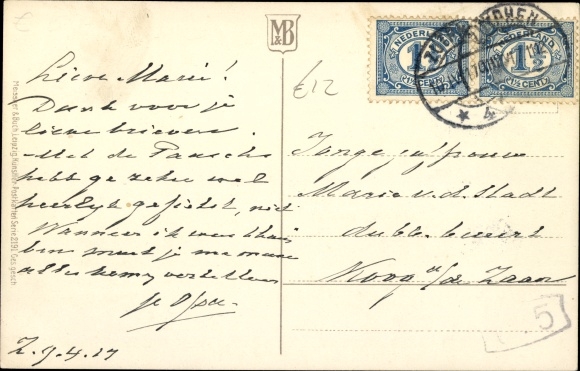 M&B
Lieve Marie!
Dank voor je
lieve brieven.
Met de Paasch
hebt ge zeker wel
heerlijk gefietst, niet
Wanneer ik weer thuis
ben moet je me maar
alles komen vertellen
je Opa.
Z. 9.4.17
Meissner & Buch, Leipzig Künstler-Postkarten Serie Ges. gesch.
€12
NEDERLAND
1½ CENT
NEDERLAND
1½ CENT
ZUTPHEN
4
Jonge juffrouw
Marie v. d. Stadt
dubbele buurt
Koog a/d Zaan
5